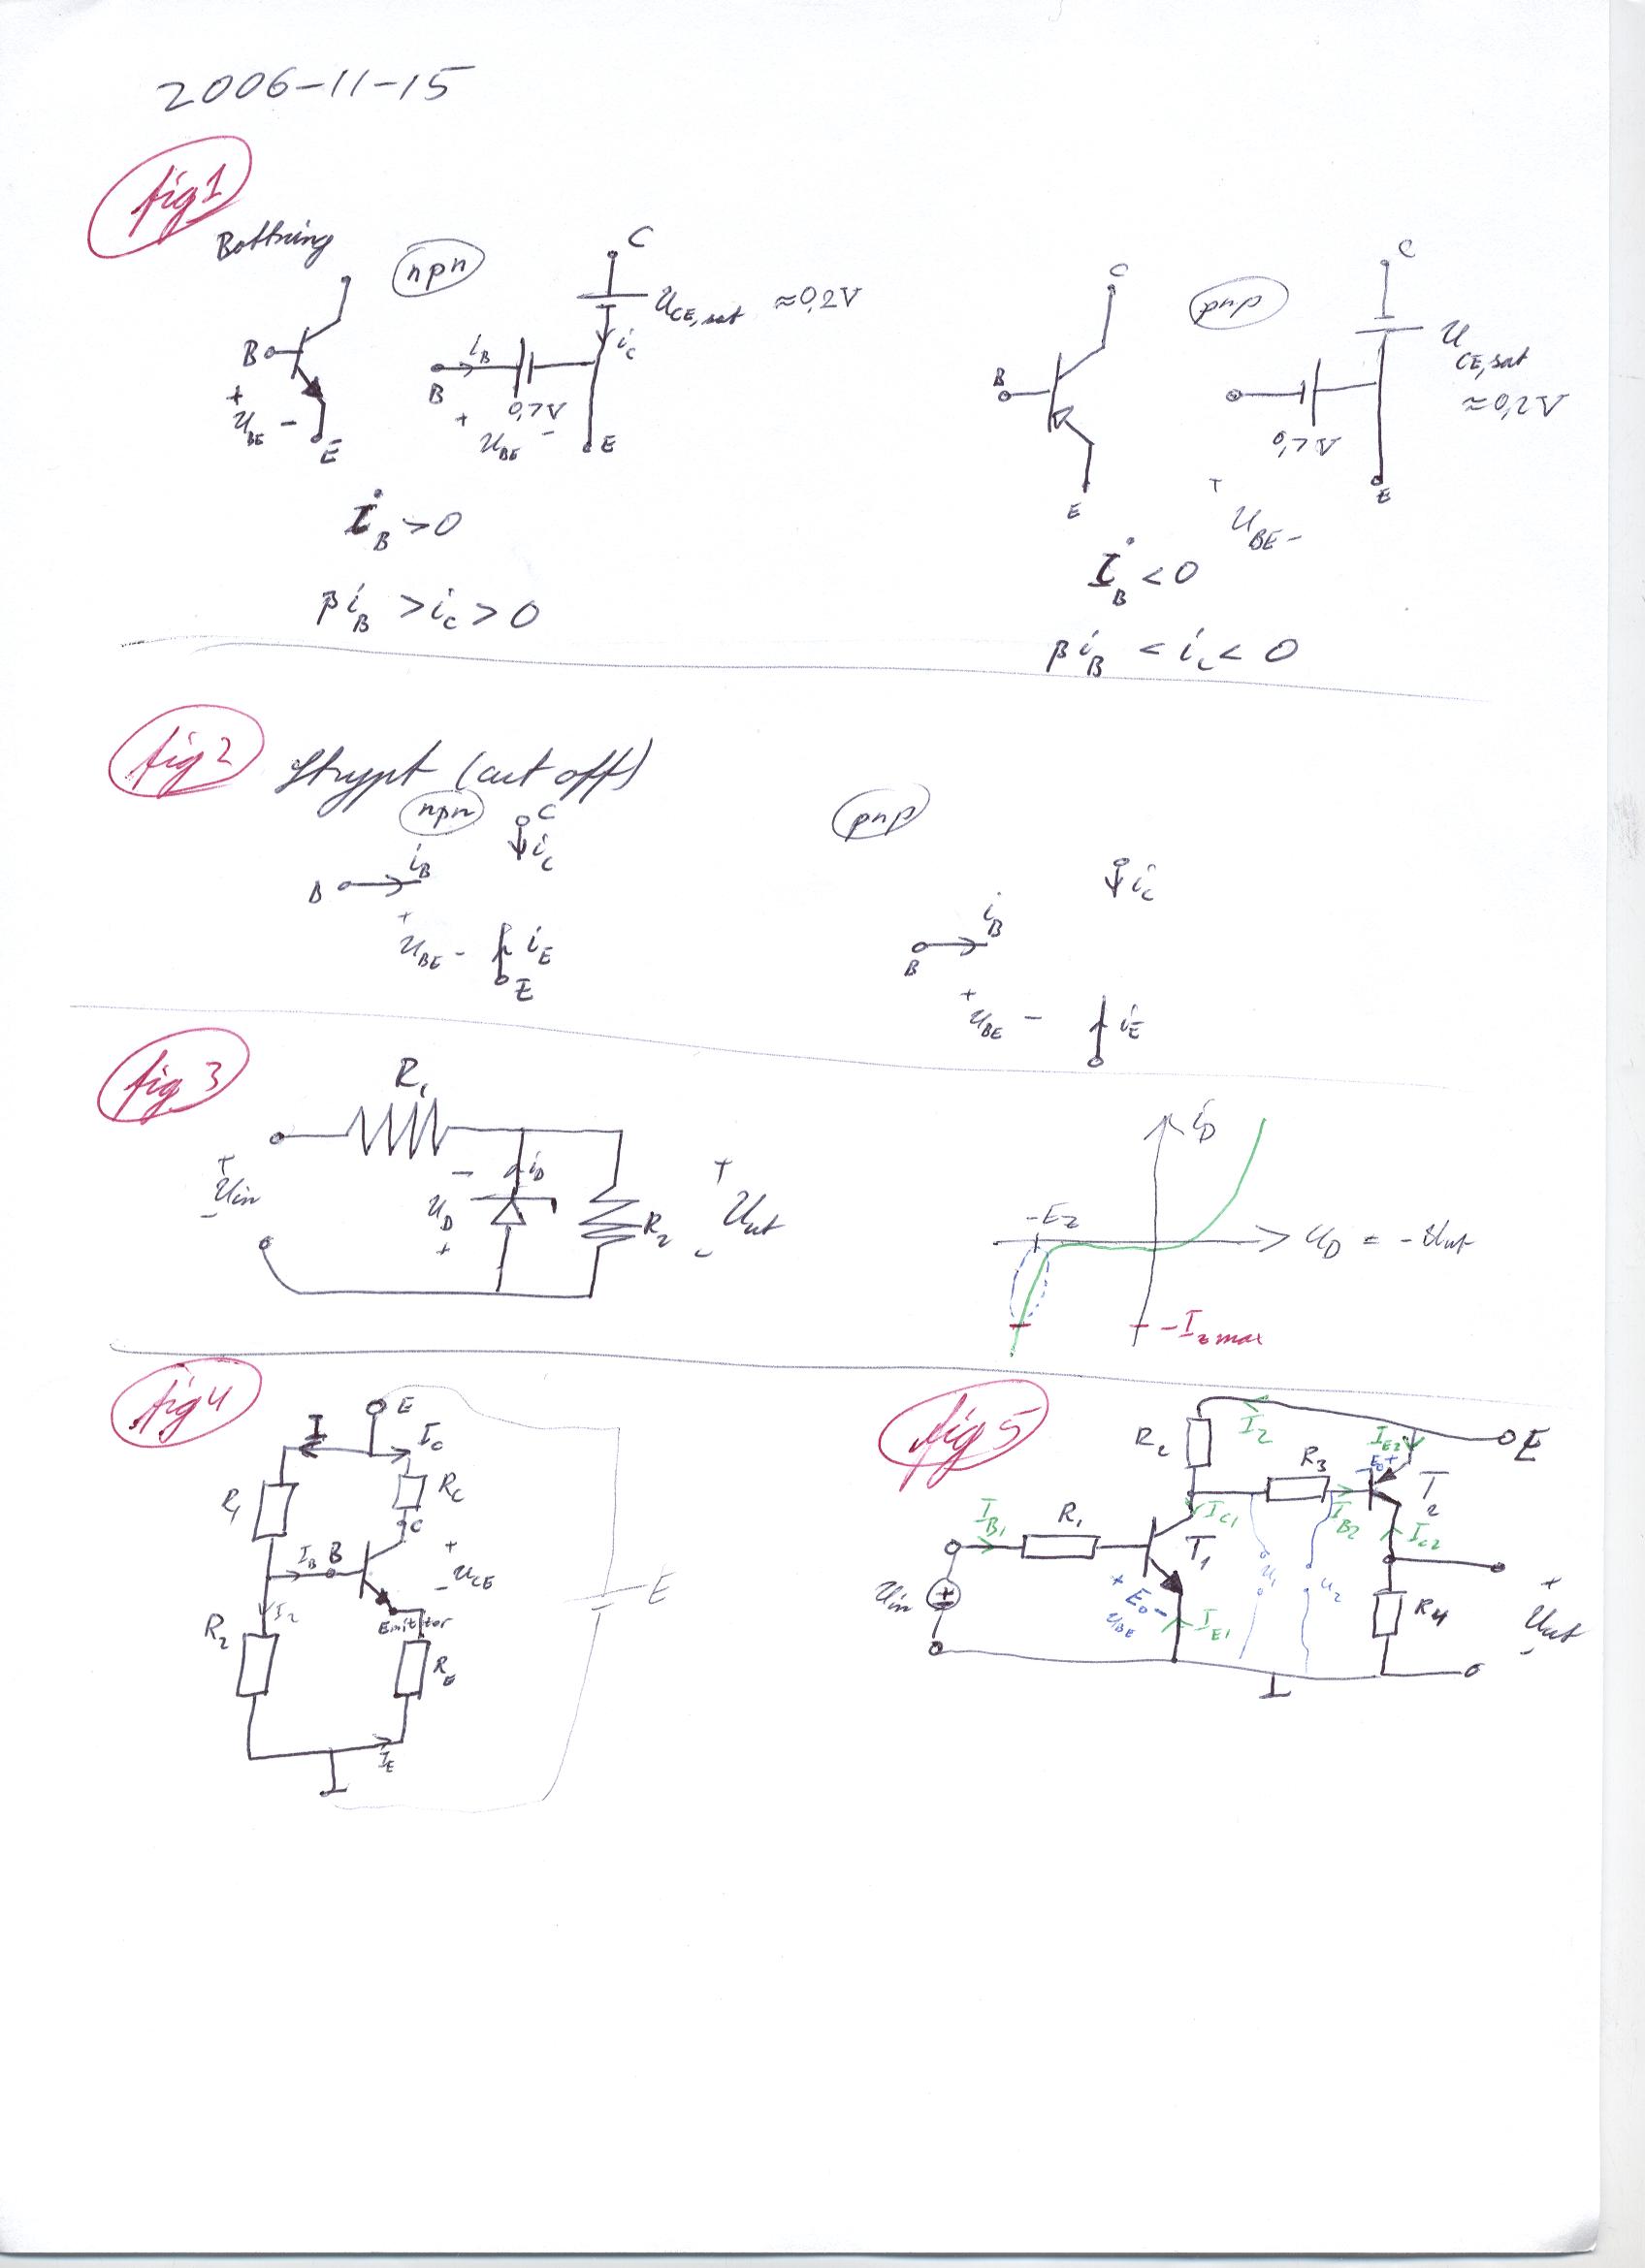 2006-11-15
fig 1
Bottning
npn
C
U_CE,sat ≈0,2V
i_C
B
+
U_BE -
E
i_B
B
0,7V
+ U_BE -
E
I_B > 0
β i_B > i_C > 0
C
pnp
C
B
U_CE,sat
≈0,2V
0,7V
E
E
+
U_BE -
I_B < 0
β i_B < i_C < 0
fig 2
Strypt (cut off)
npn
C
i_C
B
i_B
+
U_BE -
i_E
E
pnp
i_C
i_B
B
+
U_BE -
i_E
fig 3
R1
+
Uin
-
-
i_D
U_D
+
R2
+
Uut
-
i_D
-Ez
U_D = -Uut
-I_z max
fig 4
E
I
I_C
R1
RC
C
I_B B
+
U_CE
-
I2
Emitter
R2
RE
I_E
E
fig 5
E
R2
I2
I_E2
- E0 +
R3
T2
I_B2
I_C1
I_C2
I_B1
R1
T1
Uin
+
+ E0 -
U_BE
I_E1
U1
U2
R4
+
Uut
-